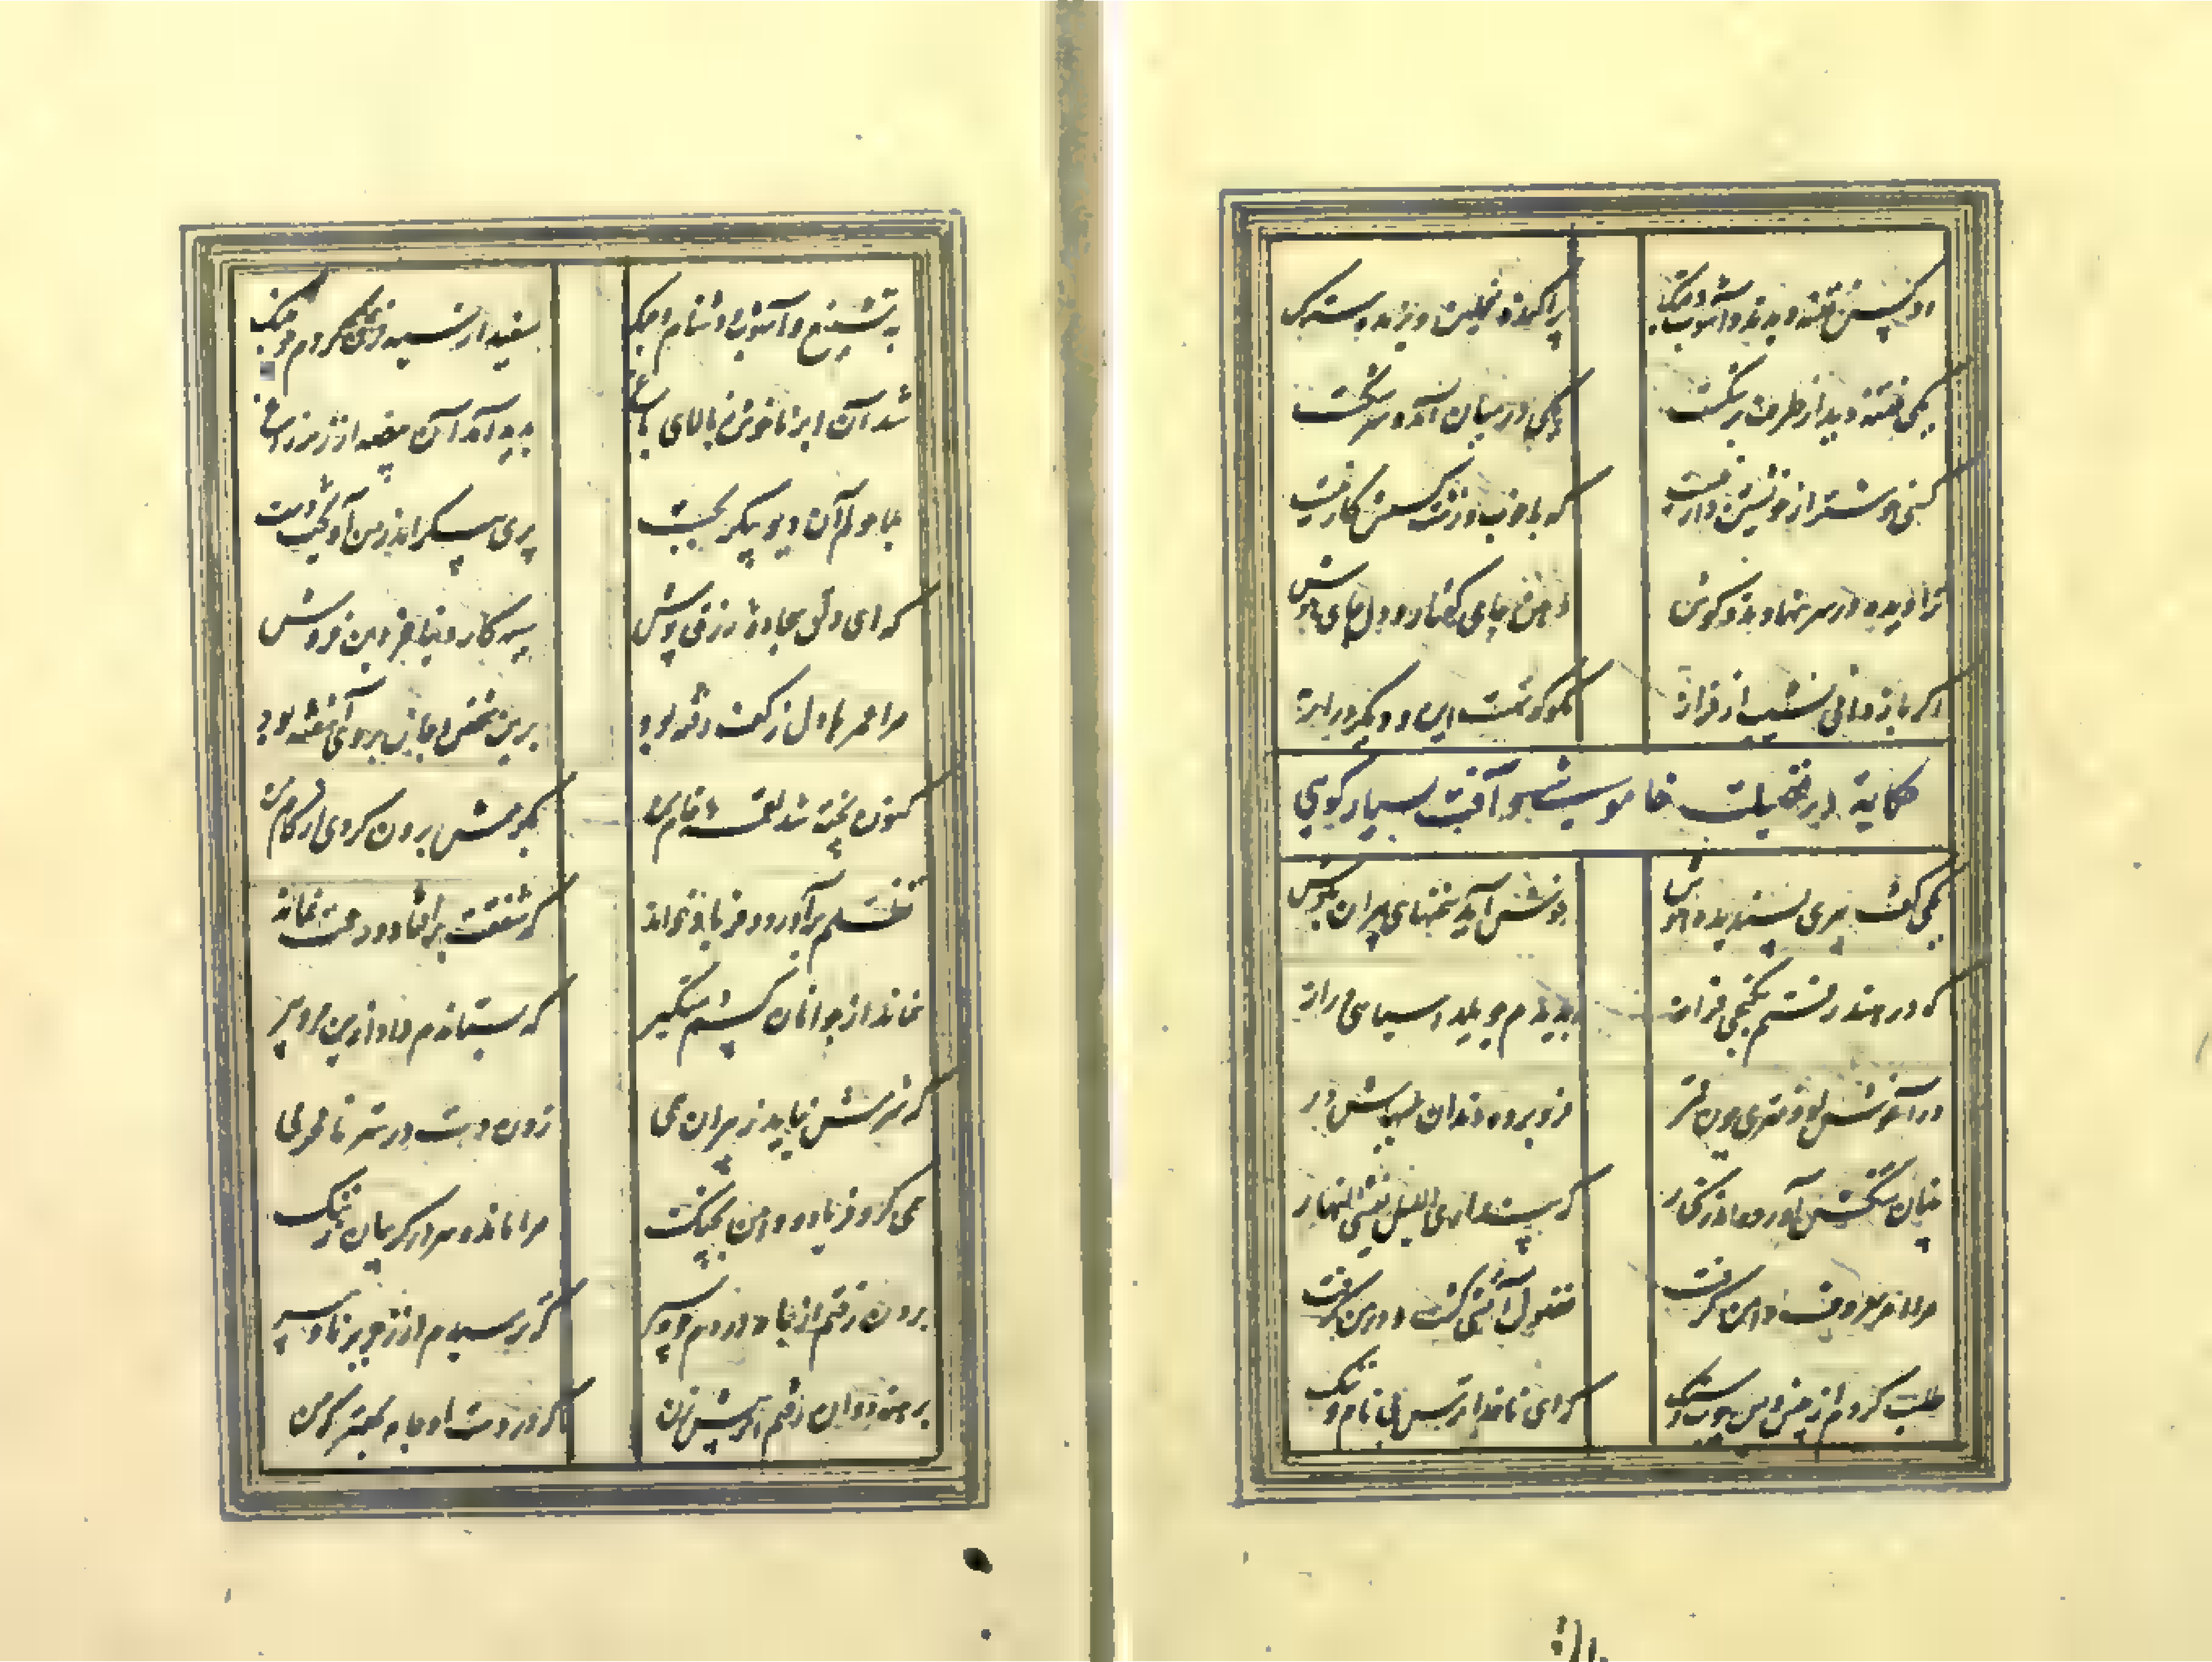 دو کس فتنه دیدند و آشوب و جنگ پراکنده نعلین و پرنده سنگ
یکی فتنه دید از طرف برشکست یکی در میان آمد و سر شکست
کسی خوشتر از خویشتن دار نیست که با خوب و زشت کسش کار نیست
ترا دیده در سر نهادند و گوش دهن جای گفتار و دل جای هوش
اگر باز دانی نشیب از فراز
حکایة در فضیلت خاموشی و آفت بسیار گویی
یکی گفت پیری پسندیده هوش خوش آید سخنهای پیران بگوش
که در هند رفتم بکنجی فراز بدیدم چو یلدا سیاهی دراز
در آغوش او دختری چون قمر فرو برده دندان بلبهاش در
چنان تنگش آورده اندر کنار که پنداری اللیل یغشی النهار
مرا امر معروف دامن گرفت فضول آتشی گشت و در من گرفت
طلب کردم از پیش و پس چوب و سنگ که ای ناخدا ترس بی نام و ننگ
به تشنیع و آشوب و دشنام و جنگ سفید از سیه فرق کردم چو
شد آن ابر ناخوش ز بالای باغ پدید آمد آن بیضه از زیر زاغ
بلاحولم آن دیو پیکر بجست پری پیکر اندر من آویخت دست
که ای دلق سجاده زرق پوش سیه کار دنیا خر دین فروش
مرا عمرها دل ز کف رفته بود برین شخص و جان بر وی آشفته بود
کنون پخته شد لقمه خام من که گرمش برون کردی از کام من
تظلم برآورد و فریاد خواند که شفقت برافتاد و رحمت نماند
نماند از جوانان کسی دستگیر که بستاندم داد ازین مرد پیر
که شرمش نیاید ز پیران همی زدن دست در ستر نامحرمی
همی کرد فریاد و دامن بچنگ مرا مانده سر در گریبان ز ننگ
برون رفتم از جامه در دم چو سیر که ترسیدم از زجر برنا و پیر
برهنه دوان رفتم از پیش زن که در دست او جامه بهتر که من